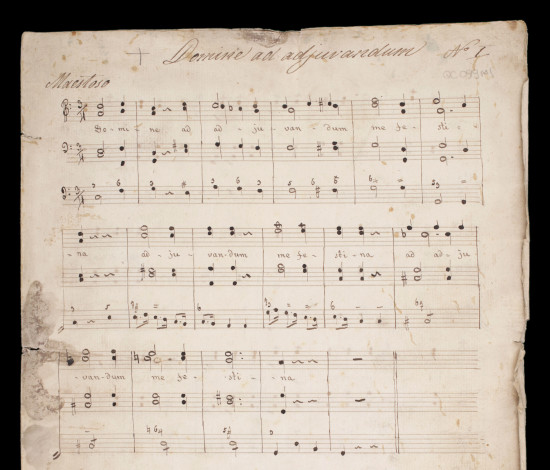 Domine ad adjuvandum Nº 1
Maestoso
Do - mi - ne ad ad - ju - van - dum me fe - sti -
- na ad - ju - vandum me fe - sti - na ad ad - ju
- van - dum me fe - sti - na